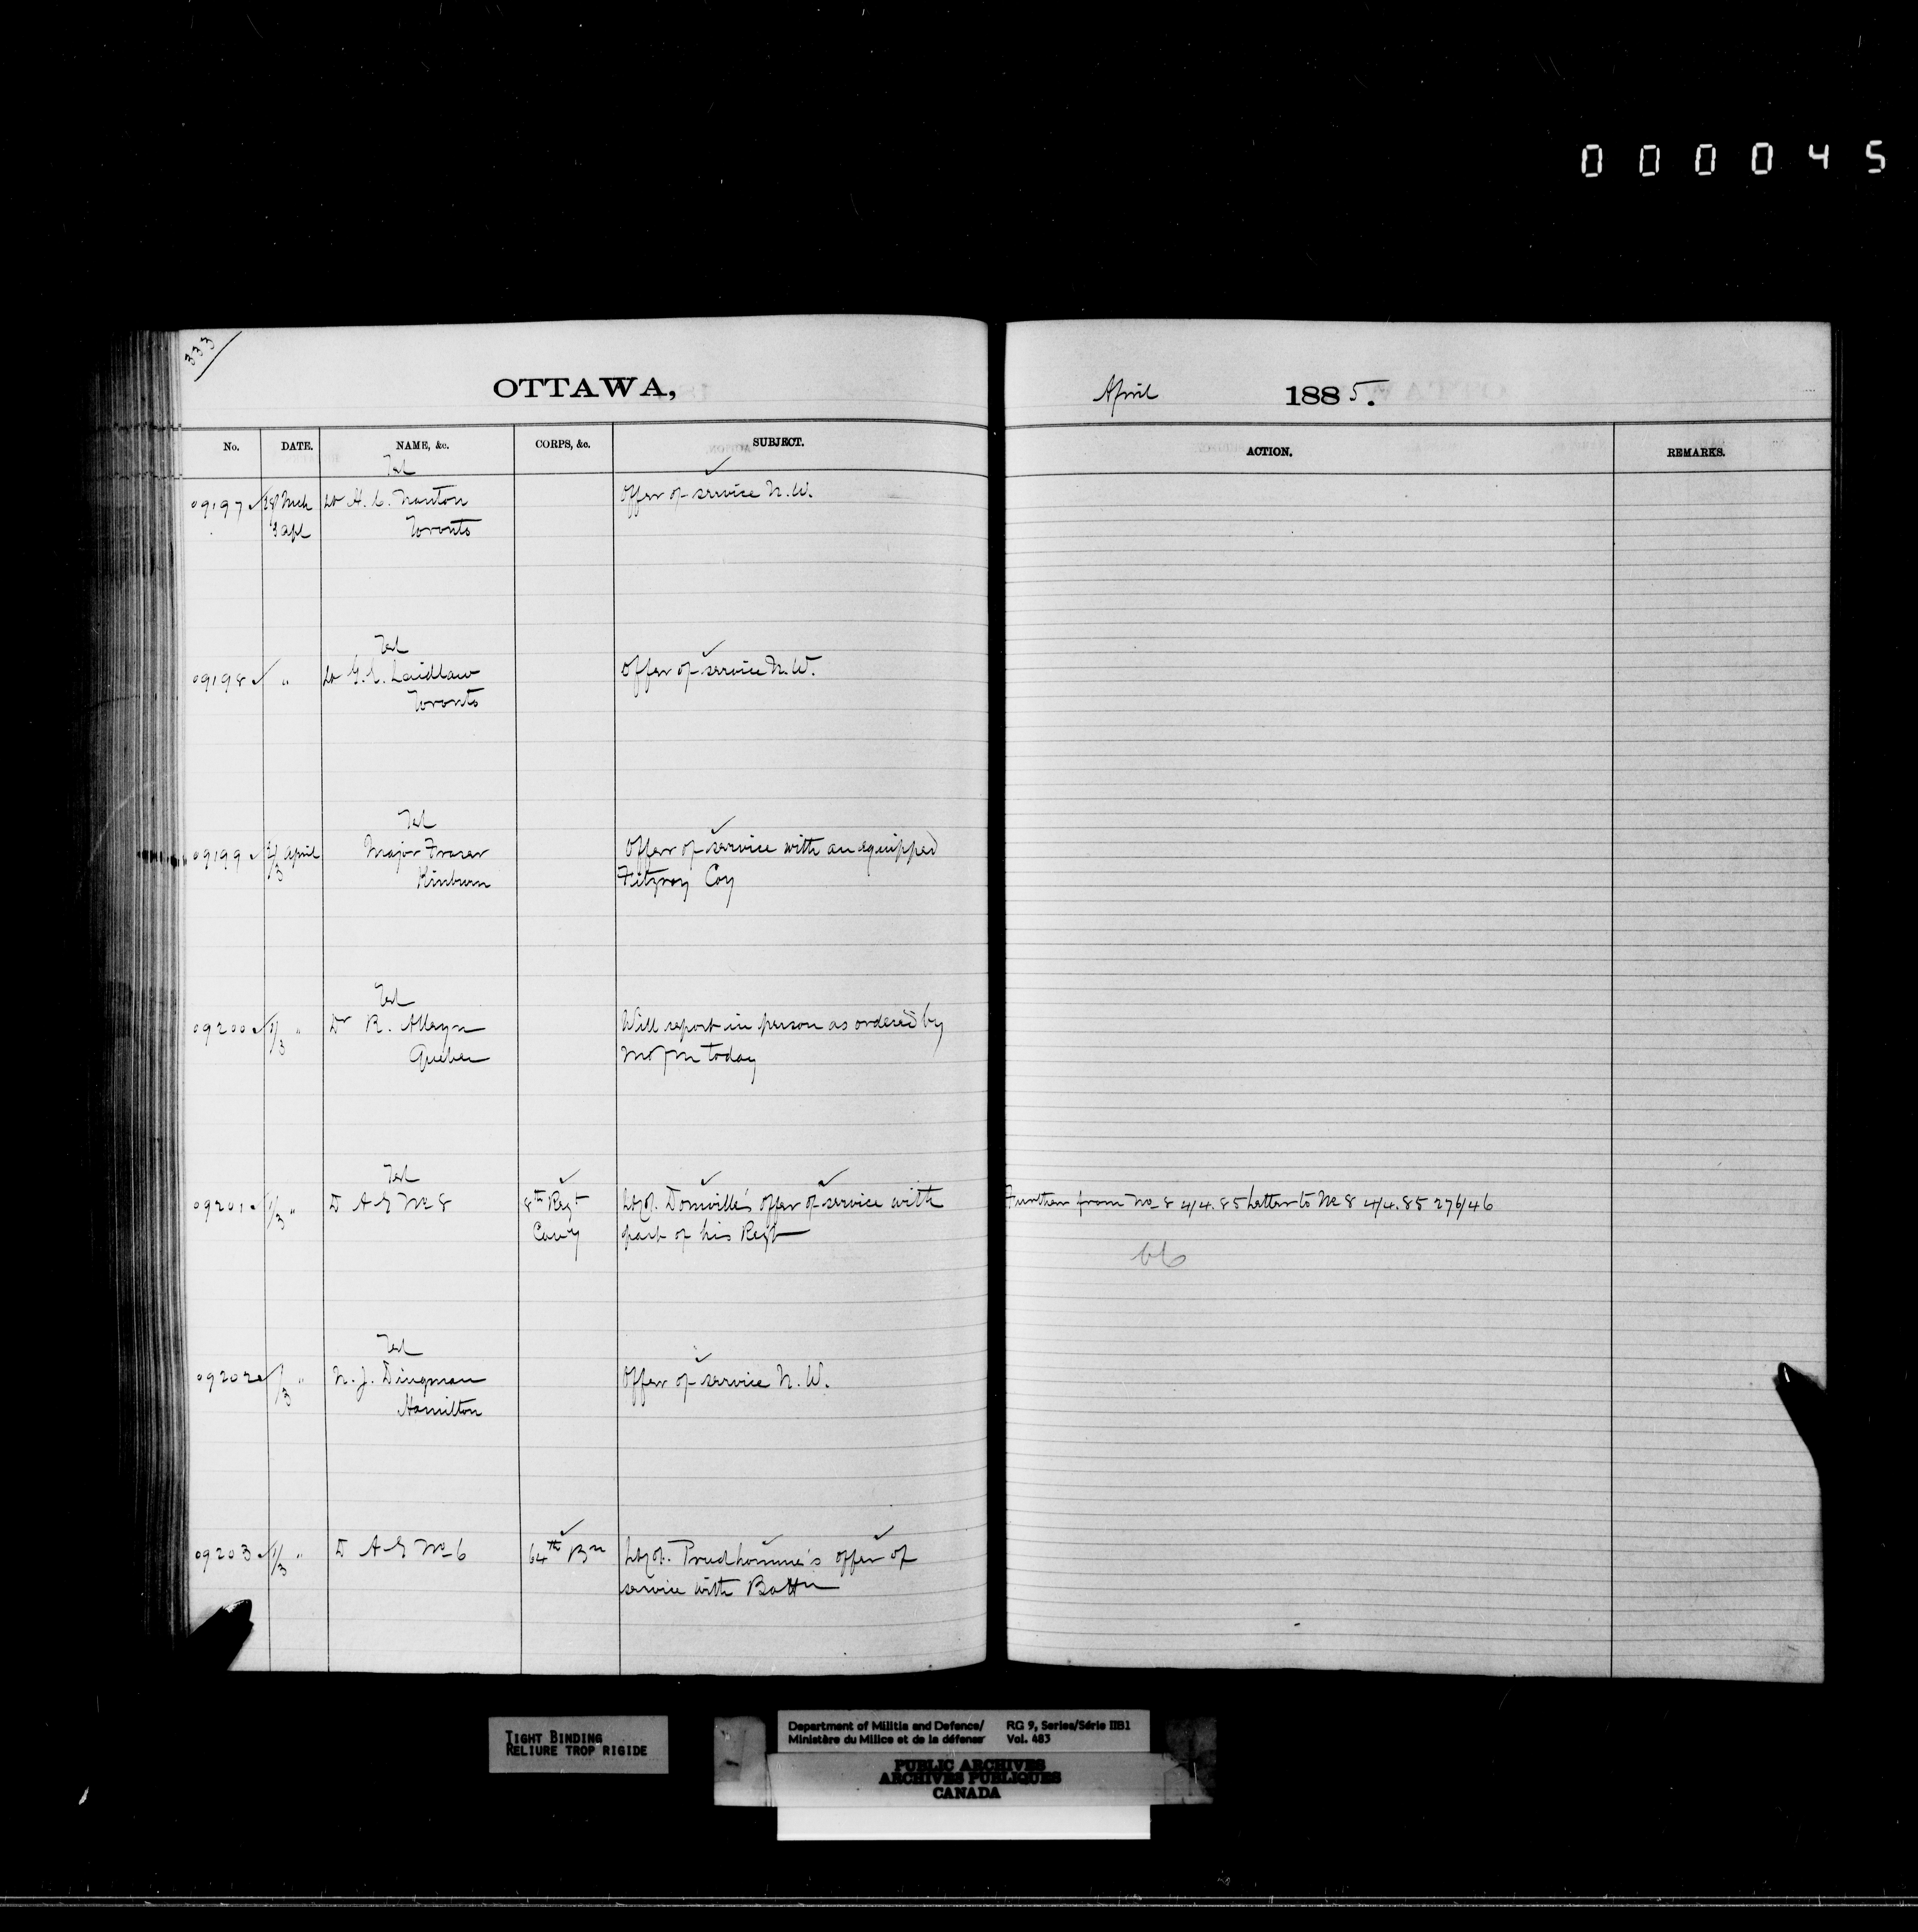 000045
333
OTTAWA,
April 1885.
No. DATE. NAME, &c. CORPS, &c. SUBJECT.
ACTION. REMARKS.
Tel
09197 28 Mch Lt H. C. Nanton Offer of service N.W.
3 Apl Toronto
Tel
09198 " Lt G. E. Laidlaw Offer of service N.W.
Toronto
Tel
09199 2/3 April Major Fraser Offer of service with an equipped
Kinburn Fitzroy Coy
Tel
09200 1/3 " Dr R. Alleyn Will report in person as ordered by
Quebec M of M today
Tel
09201 1/3 " D A G No 8 8th Regt Lt Col. Domville's offer of service with
Cavy part of his Regt
Further from No 8 4/4.85 Letter to No 8 4/4.85 276/46
Tel
09202 1/3 " N. J. Dingman Offer of service N.W.
Hamilton
09203 1/3 " D A G No 6 64th Bn Lt Col. Prudhomme's offer of
service with Battn
TIGHT BINDING
RELIURE TROP RIGIDE
Department of Militia and Defence/ RG 9, Series/Série IIB1
Ministère du Milice et de la défense Vol. 483
PUBLIC ARCHIVES
ARCHIVES PUBLIQUES
CANADA